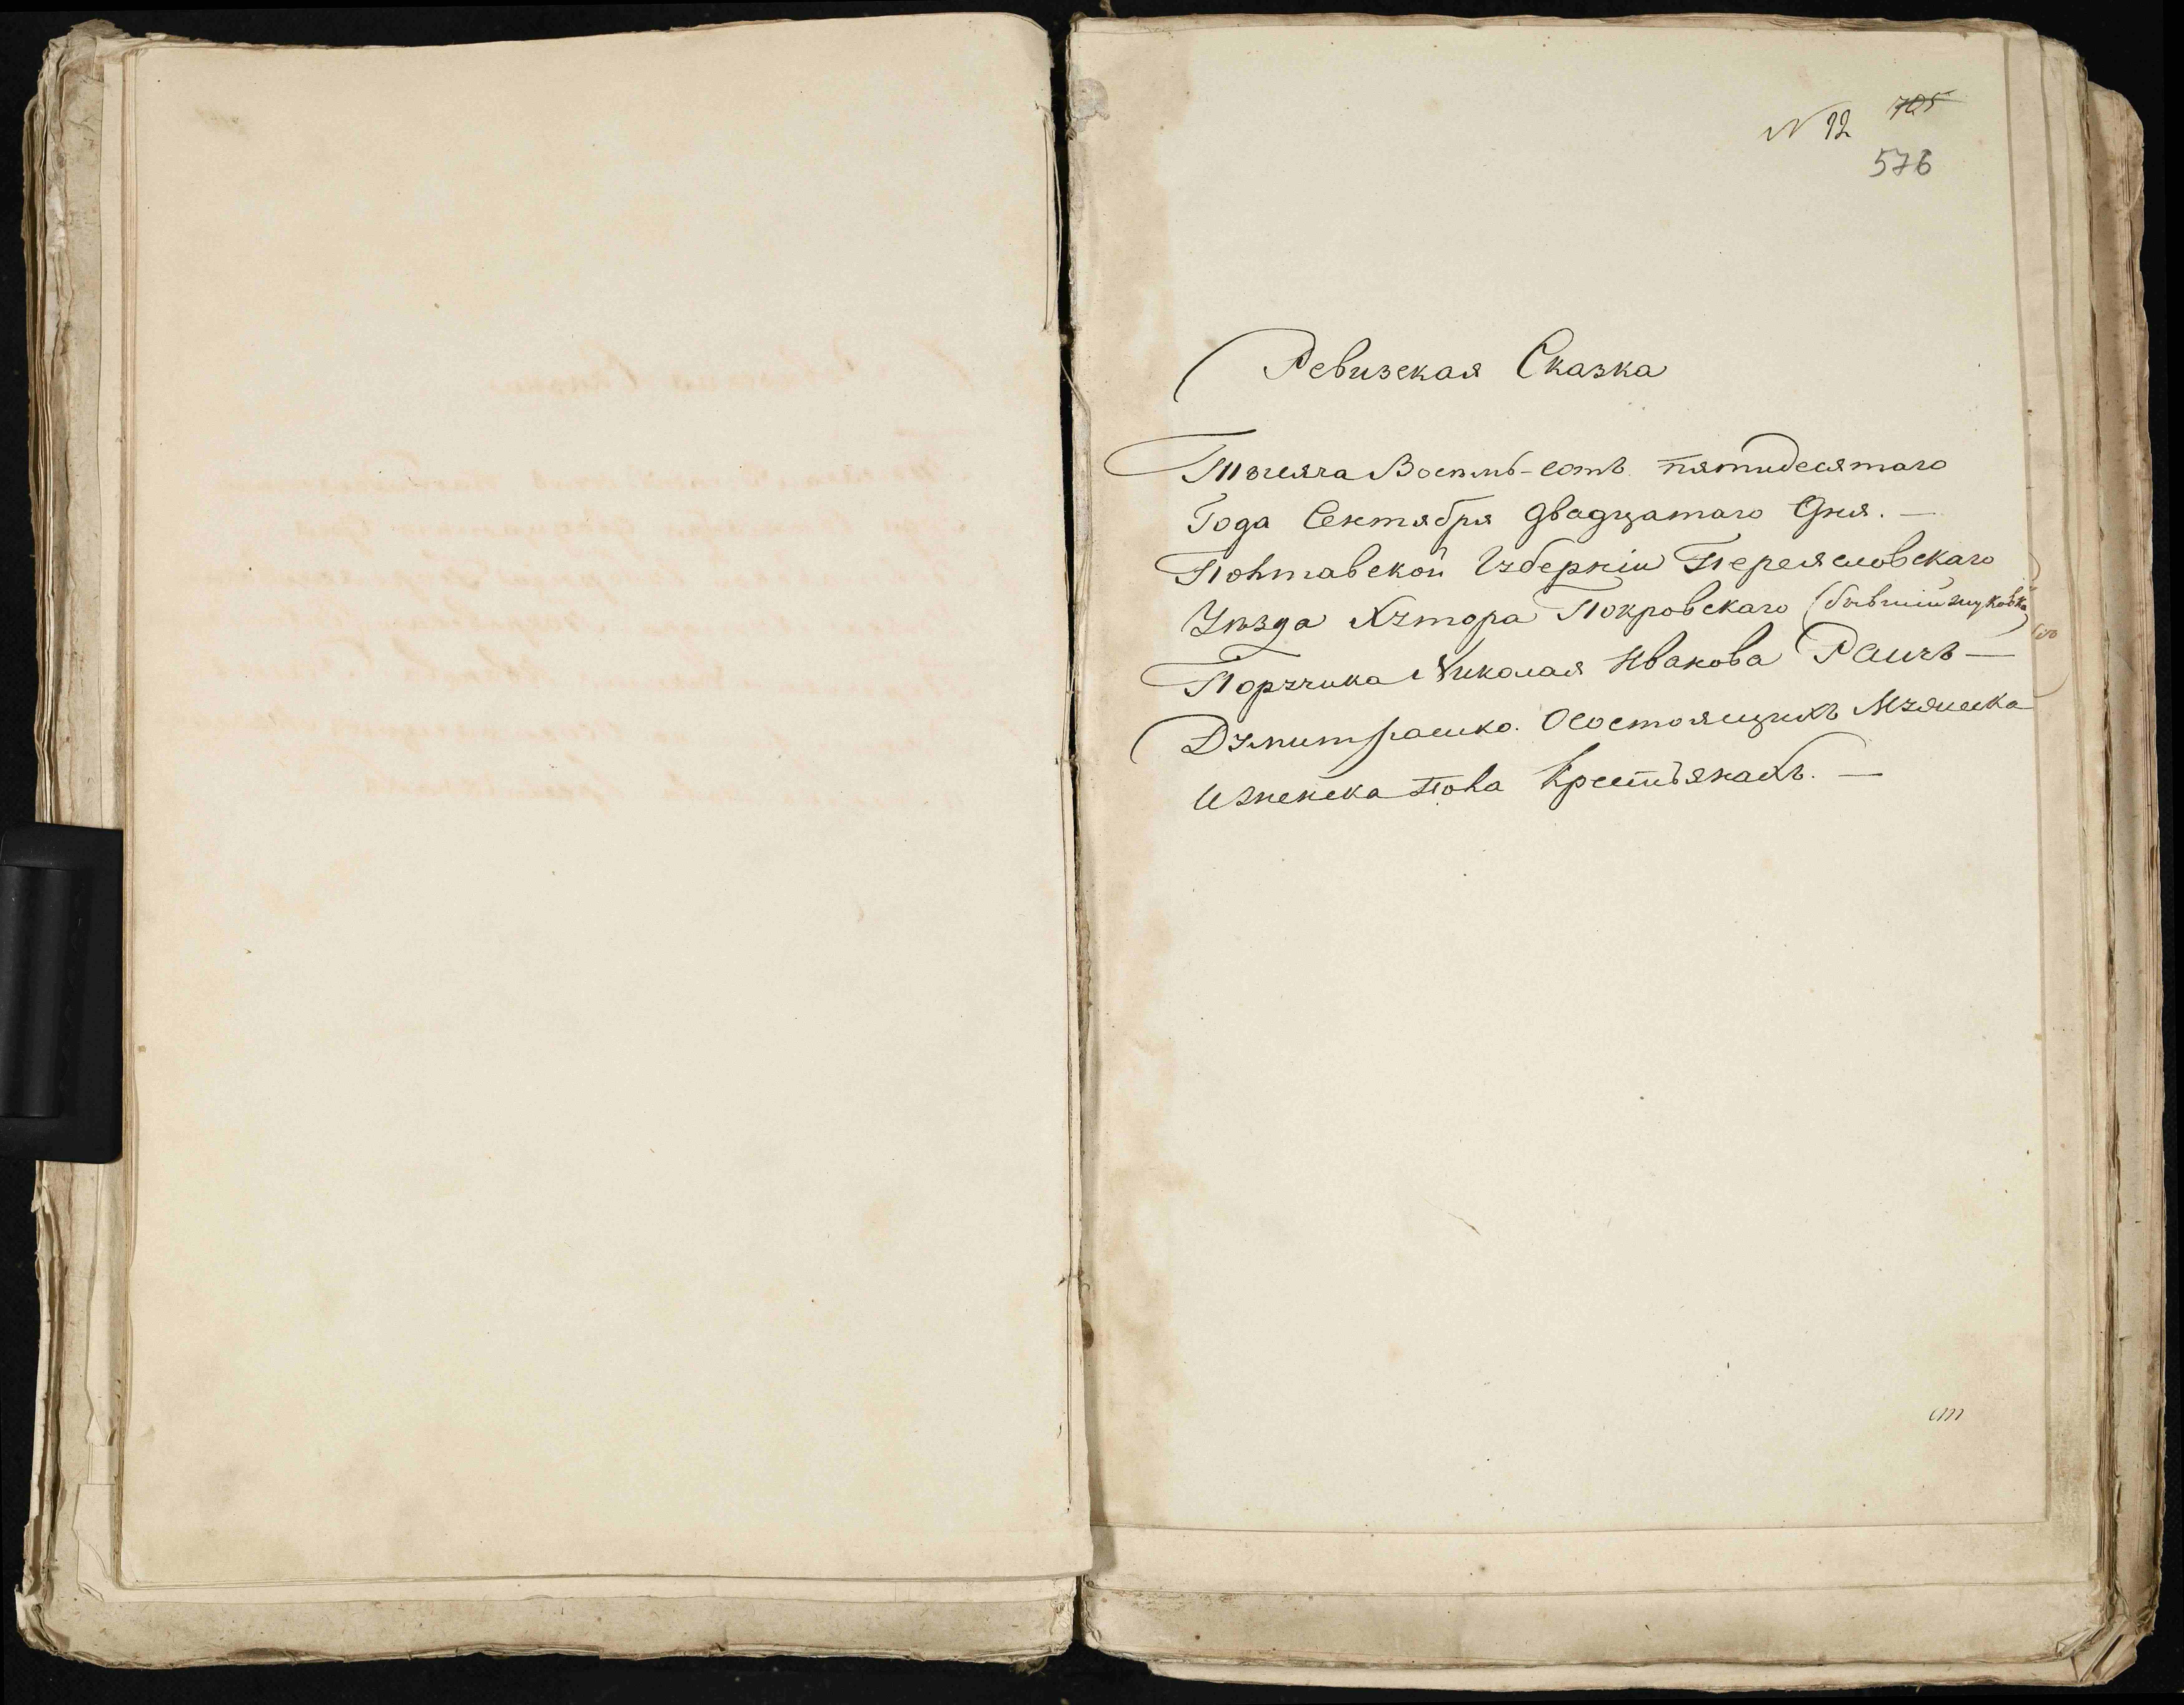 № 12 705
576
Ревизская Сказка
Тысяча Восемь-сотъ пятидесятаго
Года Сентября двадцатаго Дня. —
Полтавской Губерніи Переясловскаго
Уѣзда Хутора Покровскаго (бывшій
Поручика Николая Иванова Раичъ —
Думитрашко. Осостоящихъ Музяшска
Иженска Пола Крестьянахъ. —